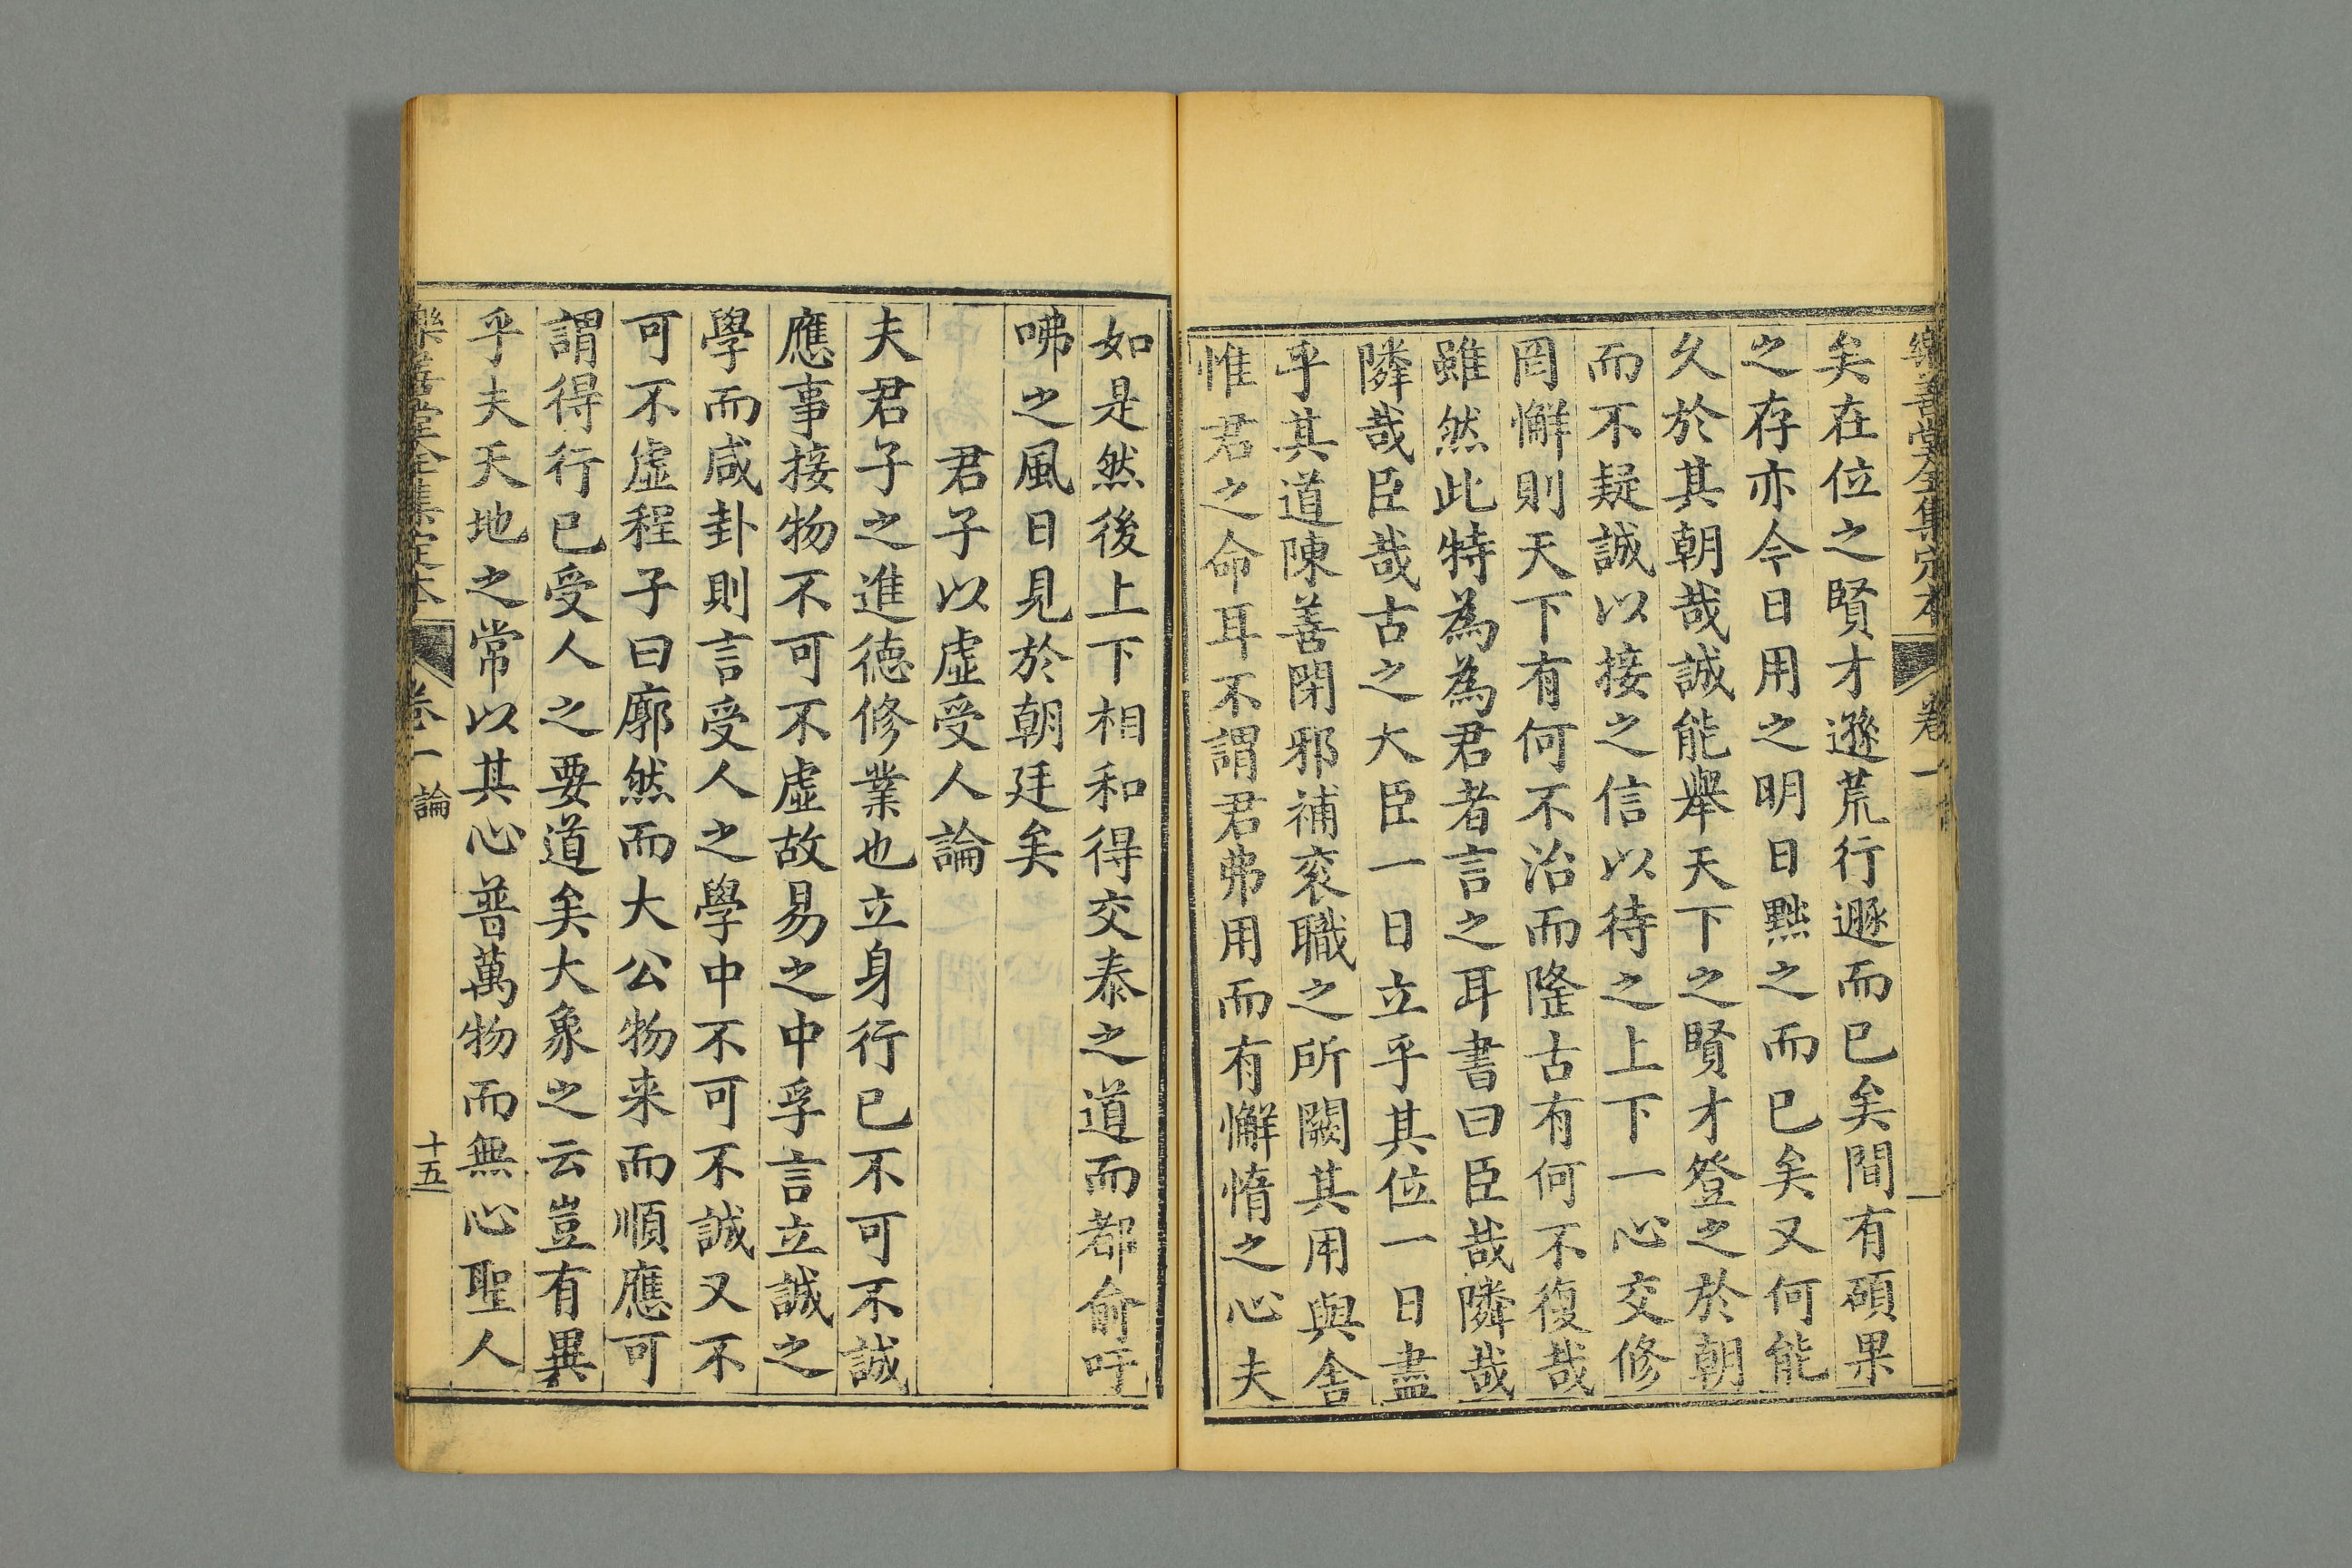 樂善堂全集定本 卷一
矣在位之賢才遯荒行遯而已矣間有碩果
之存亦今日用之明日黜之而已矣又何能
久於其朝哉誠能舉天下之賢才登之於朝
而不疑誠以接之信以待之上下一心交修
罔懈則天下有何不治而隆古有何不復哉
雖然此特為為君者言之耳書曰臣哉隣哉
隣哉臣哉古之大臣一日立乎其位一日盡
乎其道陳善閉邪補衮職之所闕其用與舍
惟君之命耳不謂君弗用而有懈惰之心夫
如是然後上下相和得交泰之道而都俞吁
咈之風日見於朝廷矣
君子以虛受人論
夫君子之進德修業也立身行已不可不誠
應事接物不可不虛故易之中孚言立誠之
學而咸卦則言受人之學中不可不誠又不
可不虛程子曰廓然而大公物来而順應可
謂得行已受人之要道矣大象之云豈有異
乎夫天地之常以其心普萬物而無心聖人
樂善堂全集定本 卷一 論 十五